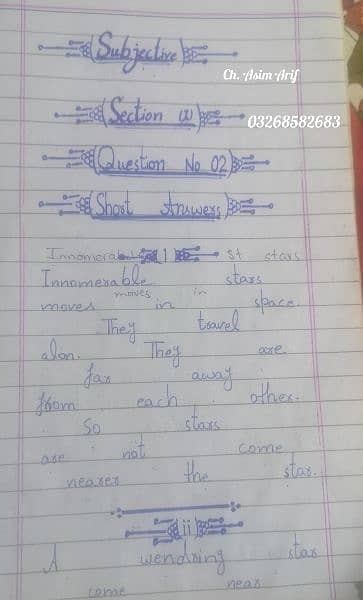 Subjective
Ch. Asim Arif
Section (I)
03268582683
Question No 02
Short Answers
i
st stars
Innumerable stars
moves in
moves in space.
They travel
alon. They are
far away
from each other.
So stars
are not come
nearer the star.
ii
A wendring star
come near